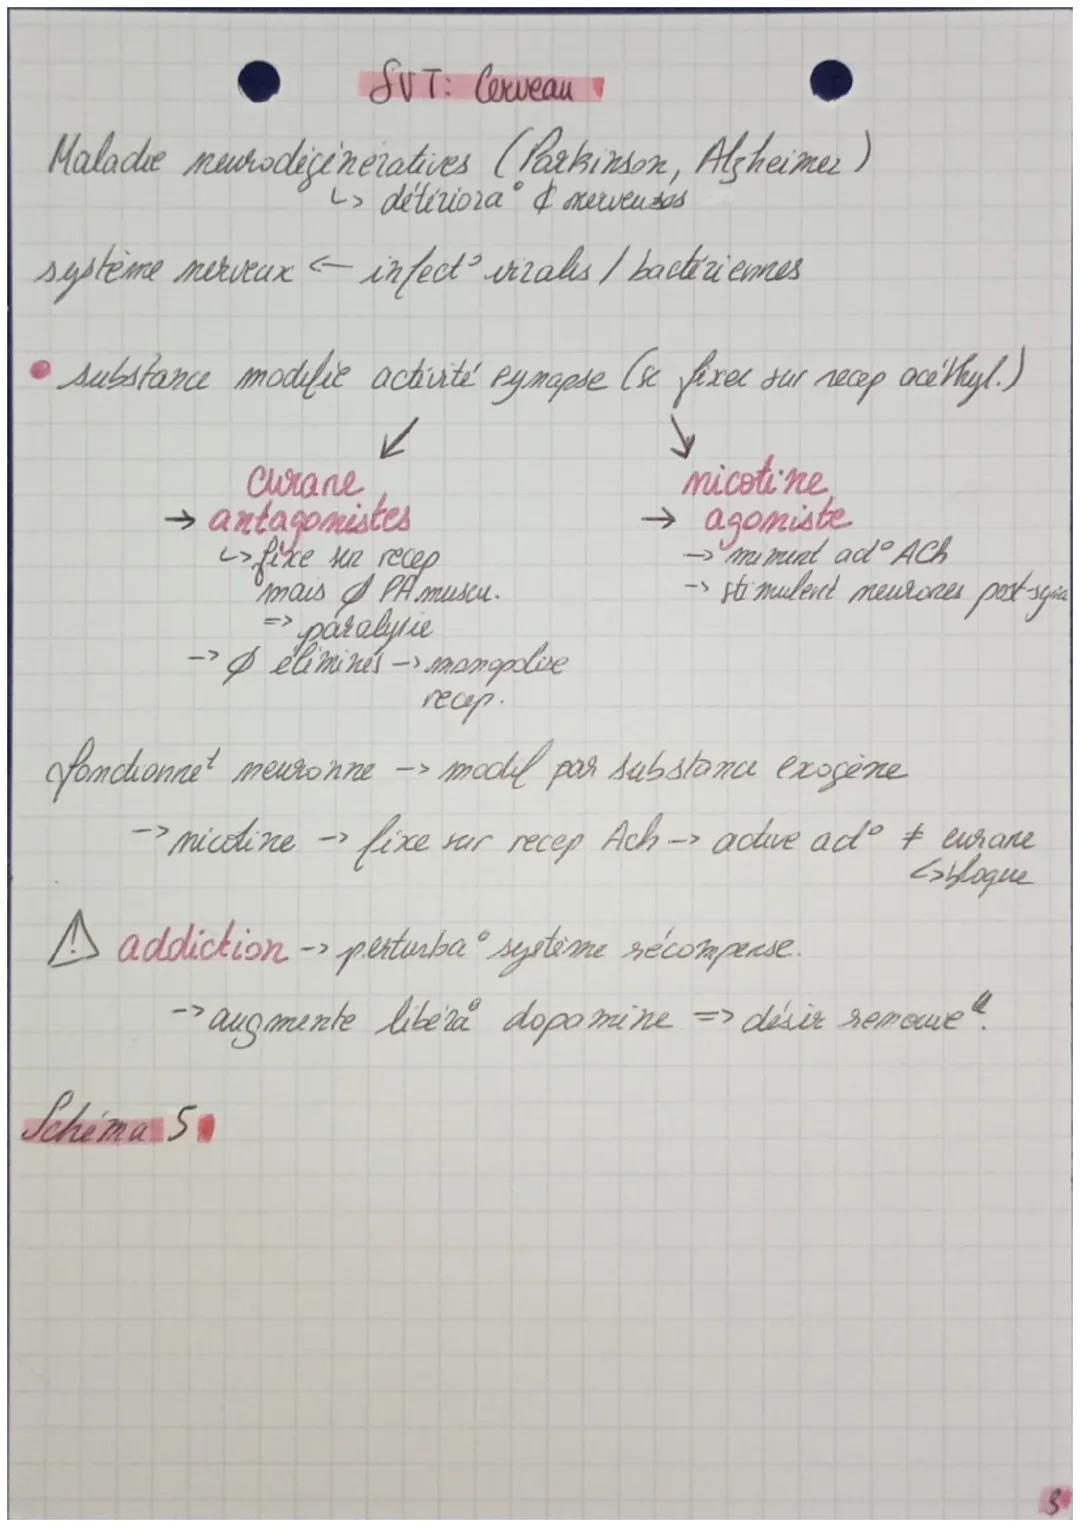 SVT: Cerveau
Maladie neurodégénératives (Parkinson, Alzheimer)
↳ détériora° ¢ nerveuses
système nerveux ← infect° virales / bactériennes
• substance modifie activité synapse (se fixer sur recep acéthyl.)
↙ ↘
curare nicotine
→ antagonistes → agoniste
↳ fixe sur recep → miment act° ACh
mais ∅ PA muscu. → stimulent neurones post-syna
=> paralysie
→ ∅ éliminés → monopolise
recep.
fonctionnet neuronne → modif par substance exogène
→ nicotine → fixe sur recep Ach → active act° ≠ curare
↳ bloque
⚠ addiction → perturba° système récompense.
→ augmente libéra° dopamine => désir
Schéma 5
5